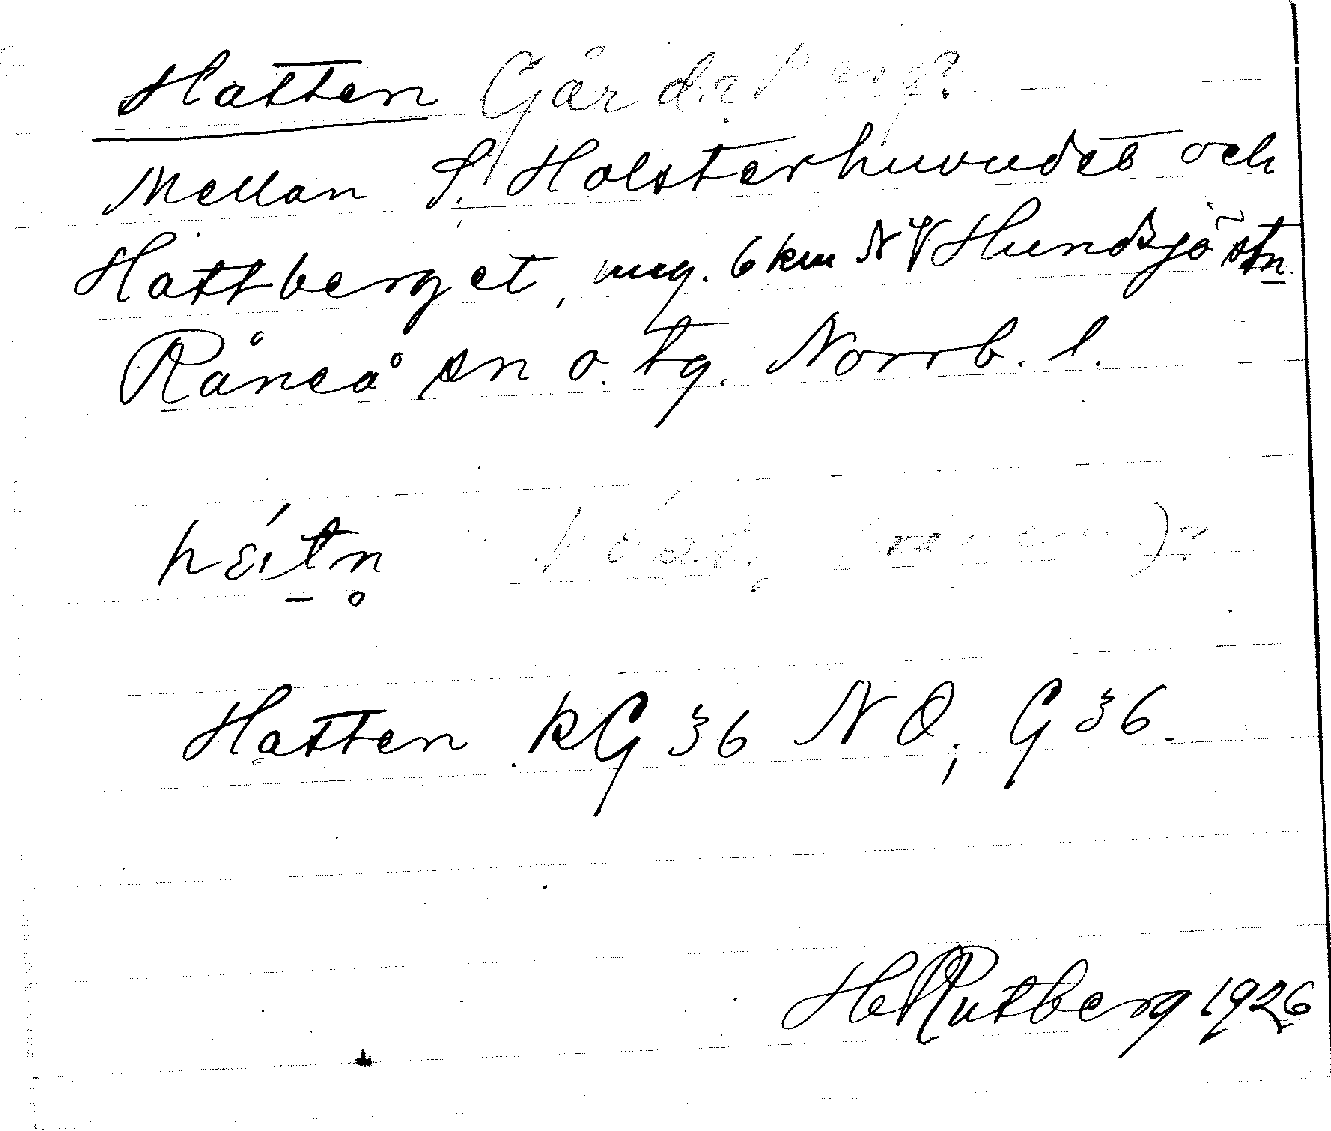 Hatten Gård
Mellan S. Holsterhuvudet och
Hattberget, ung. 6 km NV Hundsjö stn
Råneå sn o. tg. Norrb. l.
hɛ́ıt̠n̥
Hatten RG 36 NO, G 36.
H Rutberg 1926